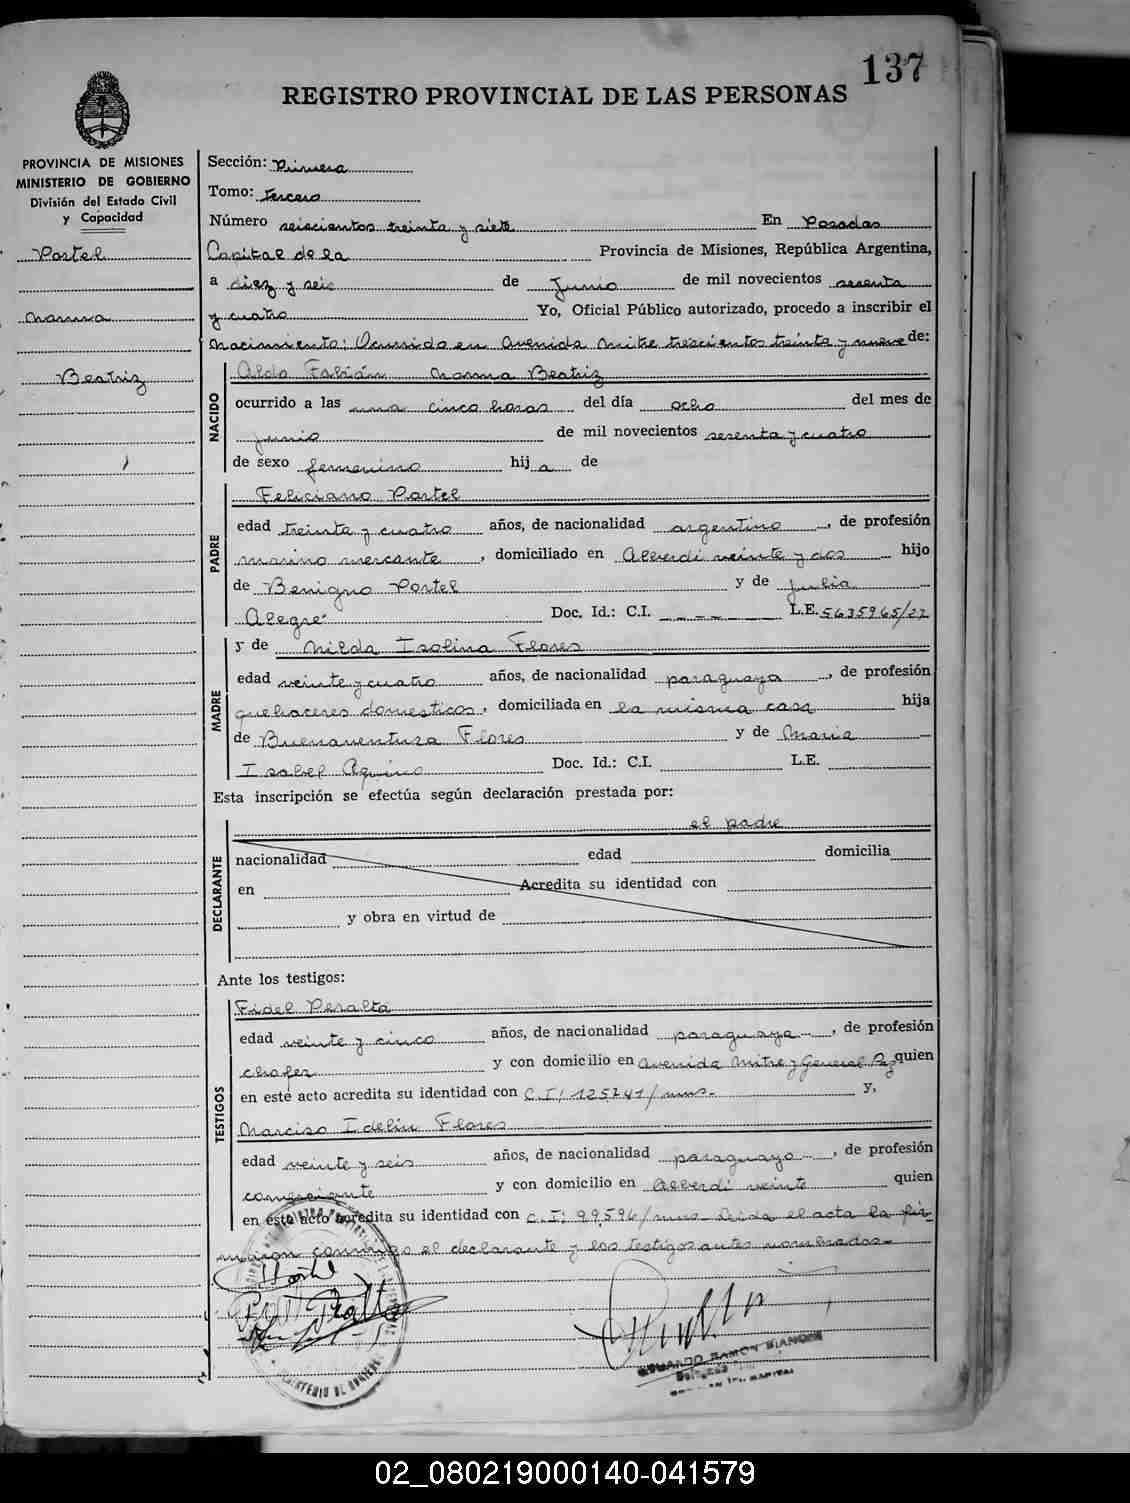 137
REGISTRO PROVINCIAL DE LAS PERSONAS
PROVINCIA DE MISIONES
MINISTERIO DE GOBIERNO
División del Estado Civil
y Capacidad
Portel
Norma
Beatriz
Sección: Primera
Tomo: tercero
Número seiscientos treinta y siete En Posadas
Capital de la Provincia de Misiones, República Argentina,
a diez y seis de Junio de mil novecientos sesenta
y cuatro Yo, Oficial Público autorizado, procedo a inscribir el
nacimiento: Ocurrido en Avenida Mitre trescientos treinta y nueve de:
NACIDO
Aldo Fabián Norma Beatriz
ocurrido a las una cinco horas del día ocho del mes de
junio de mil novecientos sesenta y cuatro
de sexo femenino hij a de
PADRE
Feliciano Portel
edad treinta y cuatro años, de nacionalidad argentino, de profesión
marino mercante, domiciliado en Alberdi veinte y dos hijo
de Benigno Portel y de Julia
Alegre Doc. Id.: C.I. ---- L.E. 5635965/22
MADRE
y de Nilda Isolina Flores
edad veinte y cuatro años, de nacionalidad paraguaya, de profesión
quehaceres domesticos, domiciliada en la misma casa hija
de Buenaventura Flores y de Maria
Isabel Aquino Doc. Id.: C.I. L.E.
Esta inscripción se efectúa según declaración prestada por:
DECLARANTE
el padre
nacionalidad edad domicilia
en Acredita su identidad con
y obra en virtud de
Ante los testigos:
TESTIGOS
Fidel Peralta
edad veinte y cinco años, de nacionalidad paraguaya, de profesión
chofer y con domicilio en Avenida Mitre y General Paz quien
en este acto acredita su identidad con C.I: 125741/mns.- y,
Narciso Idelin Flores
edad veinte y seis años, de nacionalidad paraguayo, de profesión
comerciante y con domicilio en Alberdi veinte quien
en este acto acredita su identidad con C.I: 99596/mns- Leida el acta la fir-
maron conmigo el declarante y los testigos antes nombrados.-
EDUARDO RAMON BIANCHI
MINISTERIO DE GOBIERNO
02_080219000140-041579